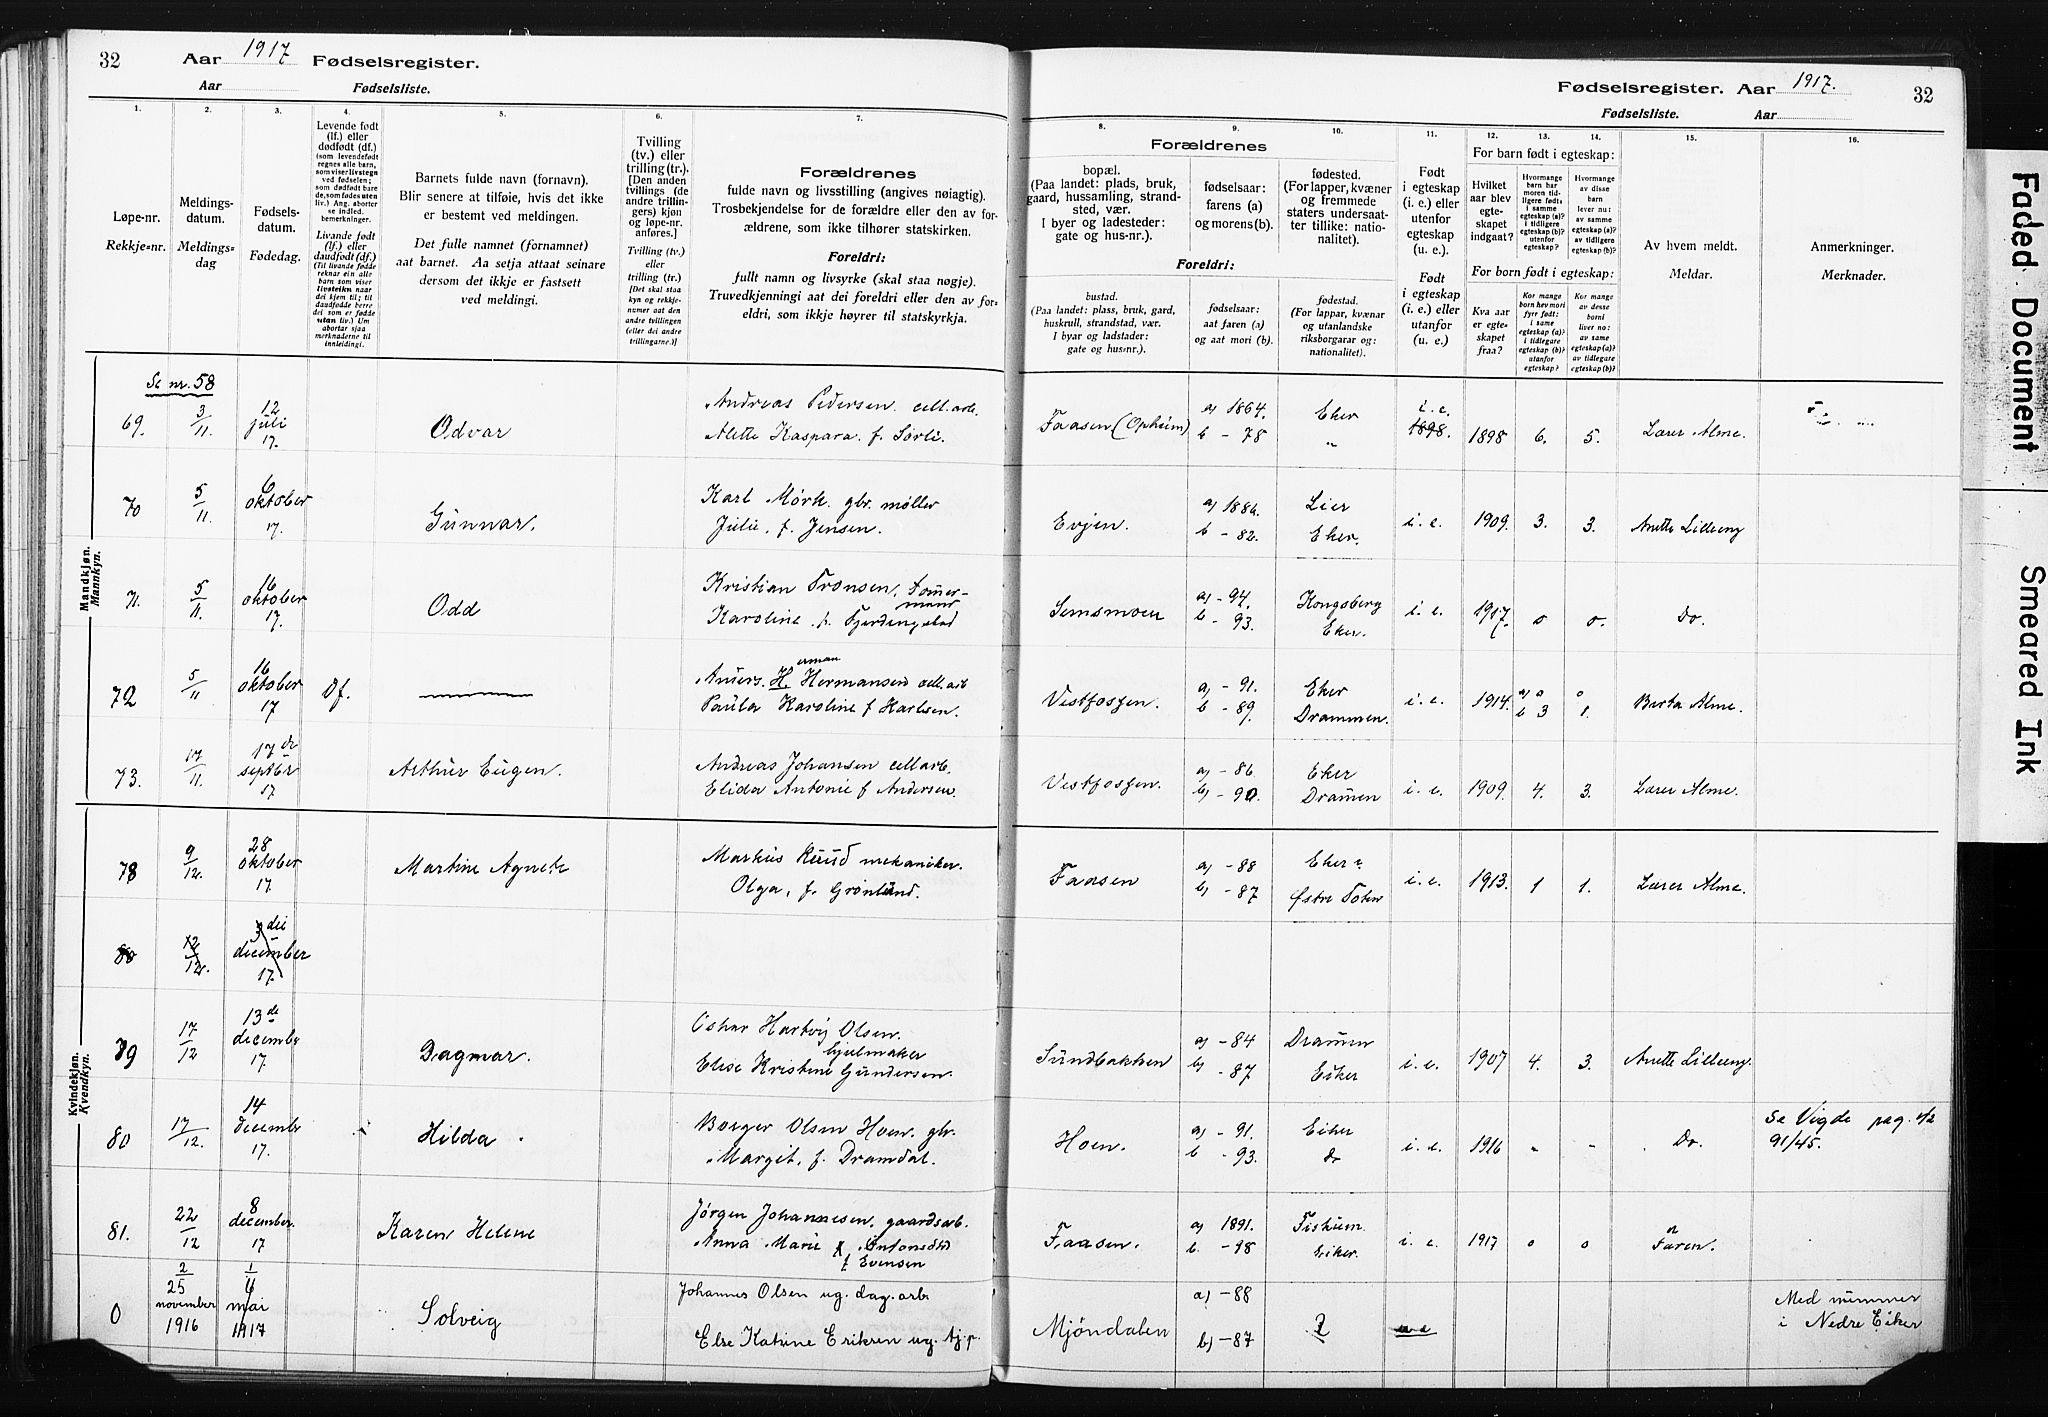 32 Aar 1917 Fødselsregister.
Aar Fødselsliste.
Fødselsregister. Aar 1917. 32
Fødselsliste. Aar
1.
Løpe-nr.
Rekkje-nr.
2.
Meldings-
datum.
Meldings-
dag
3.
Fødsels-
datum.
Fødedag.
4.
Levende født
(lf.) eller
dødfødt (df.)
(som levendefødt
regnes alle barn,
som viser livstegn
ved fødselen;
som dødfødt bare
de, som fødes uten
liv.) Ang. aborter
se indled.
bemerkninger.
Livande født
(lf.) eller
daudfødt (df.)
(Til livande fødde
reknar ein alle
barn som viser
livsteikn naar
dei kjem til; til
daudfødde berre
dei som er fødde
utan liv.) Um
abortar sjaa
merknaderne til
innleiding!
5.
Barnets fulde navn (fornavn).
Blir senere at tilføie, hvis det ikke
er bestemt ved meldingen.
Det fulle namnet (fornamnet)
aat barnet. Aa setja attaat seinare
dersom det ikkje er fastsett
ved meldingi.
6.
Tvilling
(tv.) eller
trilling (tr.).
[Den anden
tvillings (de
andre trillin-
gers) kjøn
og løpe-nr.
anføres.]
Tvilling (tv.)
eller
trilling (tr.)
[Det skal staa
kyn og rekkje-
numer aat den
andre tvillingen
(eller dei andre
trillingarne.)]
7.
Forældrenes
fulde navn og livsstilling (angives nøiagtig).
Trosbekjendelse for de forældre eller den av for-
ældrene, som ikke tilhører statskirken.
Foreldri:
fullt namn og livsyrke (skal staa nøgje).
Truvedkjenningi aat dei foreldri eller den av for-
eldri, som ikkje høyrer til statskyrkja.
Forældrenes
8.
bopæl.
(Paa landet: plads, bruk,
gaard, hussamling, strand-
sted, vær.
I byer og ladesteder:
gate og hus-nr.).
9.
fødselsaar:
farens (a)
og morens (b).
10.
fødested.
(For lapper, kvæner
og fremmede
staters undersaat-
ter tillike: natio-
nalitet).
Foreldri:
bustad.
(Paa landet: plass, bruk, gard,
huskrull, strandstad, vær.
I byar og ladstader:
gate og hus-nr.).
fødselsaar:
aat faren (a)
og aat mori (b).
fødestad.
(For lappar, kvænar
og utanlandske
riksborgarar og:
nationalitet).
11.
Født
i egteskap
(i. e.) eller
utenfor
egteskap
(u. e.).
Født
i egteskap
(i. e.) eller
utanfor
(u. e.)
For barn født i egteskap:
12.
Hvilket
aar blev
egte-
skapet
indgaat?
13.
Hvormange
barn har
moren tid-
ligere født:
i samme
egteskap (a)?
i tidligere
egteskap (b)?
utenfor
egteskap?
14.
Hvormange
av disse
barn
lever nu:
av samme
egteskap (a)?
av tidligere
egteskap (b)?
For born født i egteskap:
Kva aar
er egte-
skapet
fraa?
Kor mange
born hev mori
fyrr født:
i same
egteskap (a)?
i tidlegare
egteskap (b)?
utanfor
egteskap?
Kor mange
av desse
borni
liver no:
av same
egteskap (a)?
av tidlegare
egteskap (b)?
15.
Av hvem meldt.
Meldar.
16.
Anmerkninger.
Merknader.
Mandkjøn.
Mannkyn.
Se nr. 58
69. 3/11. 12 juli 17. Odvar
Andreas Pedersen cell. arb.
Alette Kaspara f. Sørli.
Faasen (Opheim) a) 1864. b - 78 Eker " i. e. 1898. 1898 6. 5. Lærer Alme.
70 5/11. 6 oktober 17. Gunnar.
Karl Mørk. gbr. møller
Julie, f. Jensen.
Evjen. a) 1886. b - 82. Lier Eker. i. e. 1909. 3. 3. Anette Lilleeng
71. 5/11. 16 oktober 17. Odd
Kristian Tronsen, tømer-
mand
Karoline f. Fjerdingstad
Semsmoen a) - 94. b - 93. Kongsberg Eker. i. e. 1917. 0 0. Do.
72 5/11 16 oktober 17 Df.
erman
Anders H. Hermansen cell. arb
Paula Karoline f Karlsen.
Vestfossen. a) - 91. b - 89. Eker Drammen. i. e. 1914. a) 0 b 3 0 1. Berta Alme.
73. 17/11. 17 de septbr 17 Arthur Eugen.
Andreas Johansen cell arb.
Elida Antonie f Andersen.
Vestfossen. a) - 86 b) - 90. Eker Dramen i. e. 1909. 4. 3. Lærer Alme.
Kvindekjøn.
Kvendkyn.
78 9/12. 28 oktober 17. Martine Agnete
Markus Ruud mekaniker.
Olga, f. Grønlund.
Faasen a) - 88 b) - 87 Eker Østre Toten i. e. 1913. 1 1. Lærer Alme.
80 12/12. 3 die december 17.
79 17/12 13 de decembr 17. Dagmar.
Oskar Hartvig Olsen.
hjulmaker
Elise Kristine Gundersen.
Sundbakken a) - 84 b) - 87. Dramen Eiker i. e. 1907 4. 3. Anette Lilleeng.
80 17/12. 14 decembr 17. Hilda.
Borger Olsen Hoen. gbr.
Margit, f. Dramdal.
Hoen. a) - 91. b - 93. Eiker do i. e. 1916 - - Do. Se Vigde pag. 42
91/45.
81. 22/12 8 december. 17 Karen Helene
Jørgen Johannesen. gaardsarb.
Anna Marie f. Antonsdtr
f Evensen
Faasen. a) 1891. b. - 98 Fiskum. Eiker. i. e. 1917 0 0 Faren.
0 2/25 november 1916 1/6 mai 1917 Solveig
Johannes Olsen ug. dag. arb.
Else Katrine Eriksen ug. tj. p.
Mjøndalen a) - 88 b) - 87 ? u e Med nummer
i Nedre Eiker
Faded Document
Smeared Ink